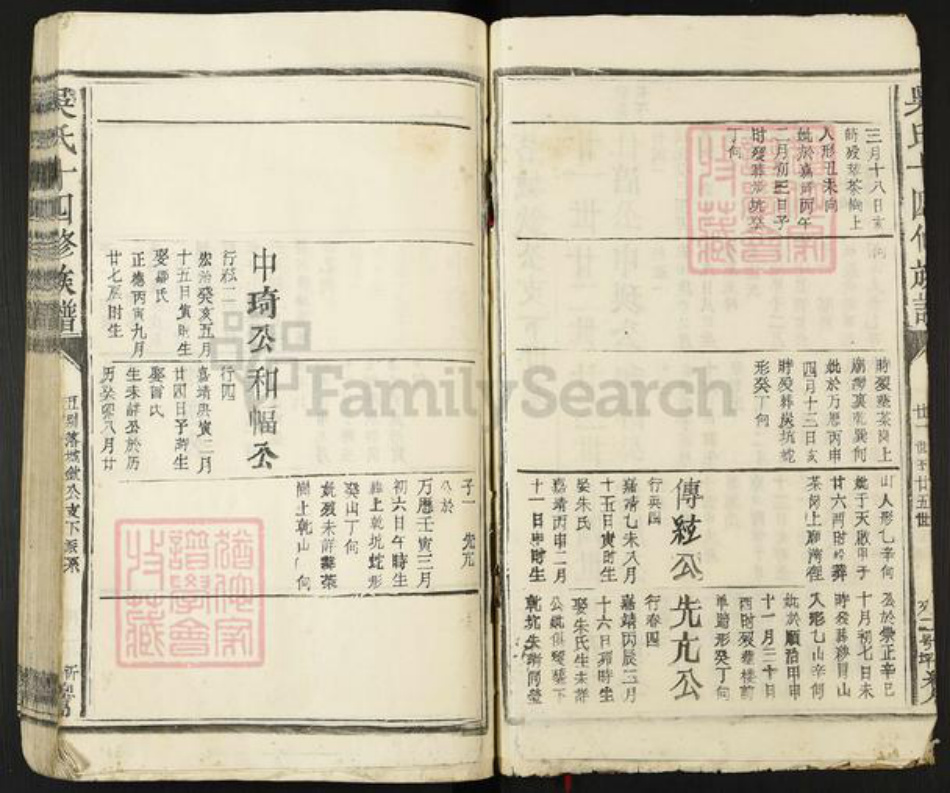 三月十八日亥
時歿葬茶崗上
人形丑未向
妣於嘉靖丙午
二月初三日子
時歿葬炭坑癸
丁向
時歿葬茶崗上
廟灣裏乾巽向
妣於万曆丙申
四月十三日亥
時歿葬炭坑蛇
形癸丁向
山人形乙辛向
妣于天啟甲子
廿六
茶崗上廟灣裡
傳紜公
行英四
嘉靖乙未八月
十五日寅時生
娶朱氏
嘉靖丙申二月
十一日申時生
公於崇正辛巳
十月初七日未
人形乙山辛向
妣於順治甲申
十一月三十日
酉時歿葬樓前
單蹄形癸丁向
先亢公
行春四
嘉靖丙辰三月
十六日卯時生
娶朱氏生未詳
公妣俱歿葬下
吳氏十四修族譜
廿一世至廿五世
中琦公
行稔二
宏治癸亥五月
十五日寅時生
娶羅氏
正德丙寅九月
廿七辰時生
和幅公
行四
嘉靖庚寅二月
廿四日子時生
生未詳公於历
历癸卯八月廿
子一 先亢
公於
万历壬寅三月
初六日午時生
葬上乾坑蛇形
癸山丁向
妣歿未詳葬茶
崗上乾山
吳氏十四修族譜
FamilySearch